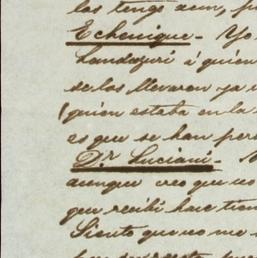 las tengo aun, p
Echenique - Yo
Landazuri á quien
se los llevaron ya
(quien estaba en la
es que se han per
Dr. Luciani -
aunque creo que no
que recibí hace tien
Siento que no me